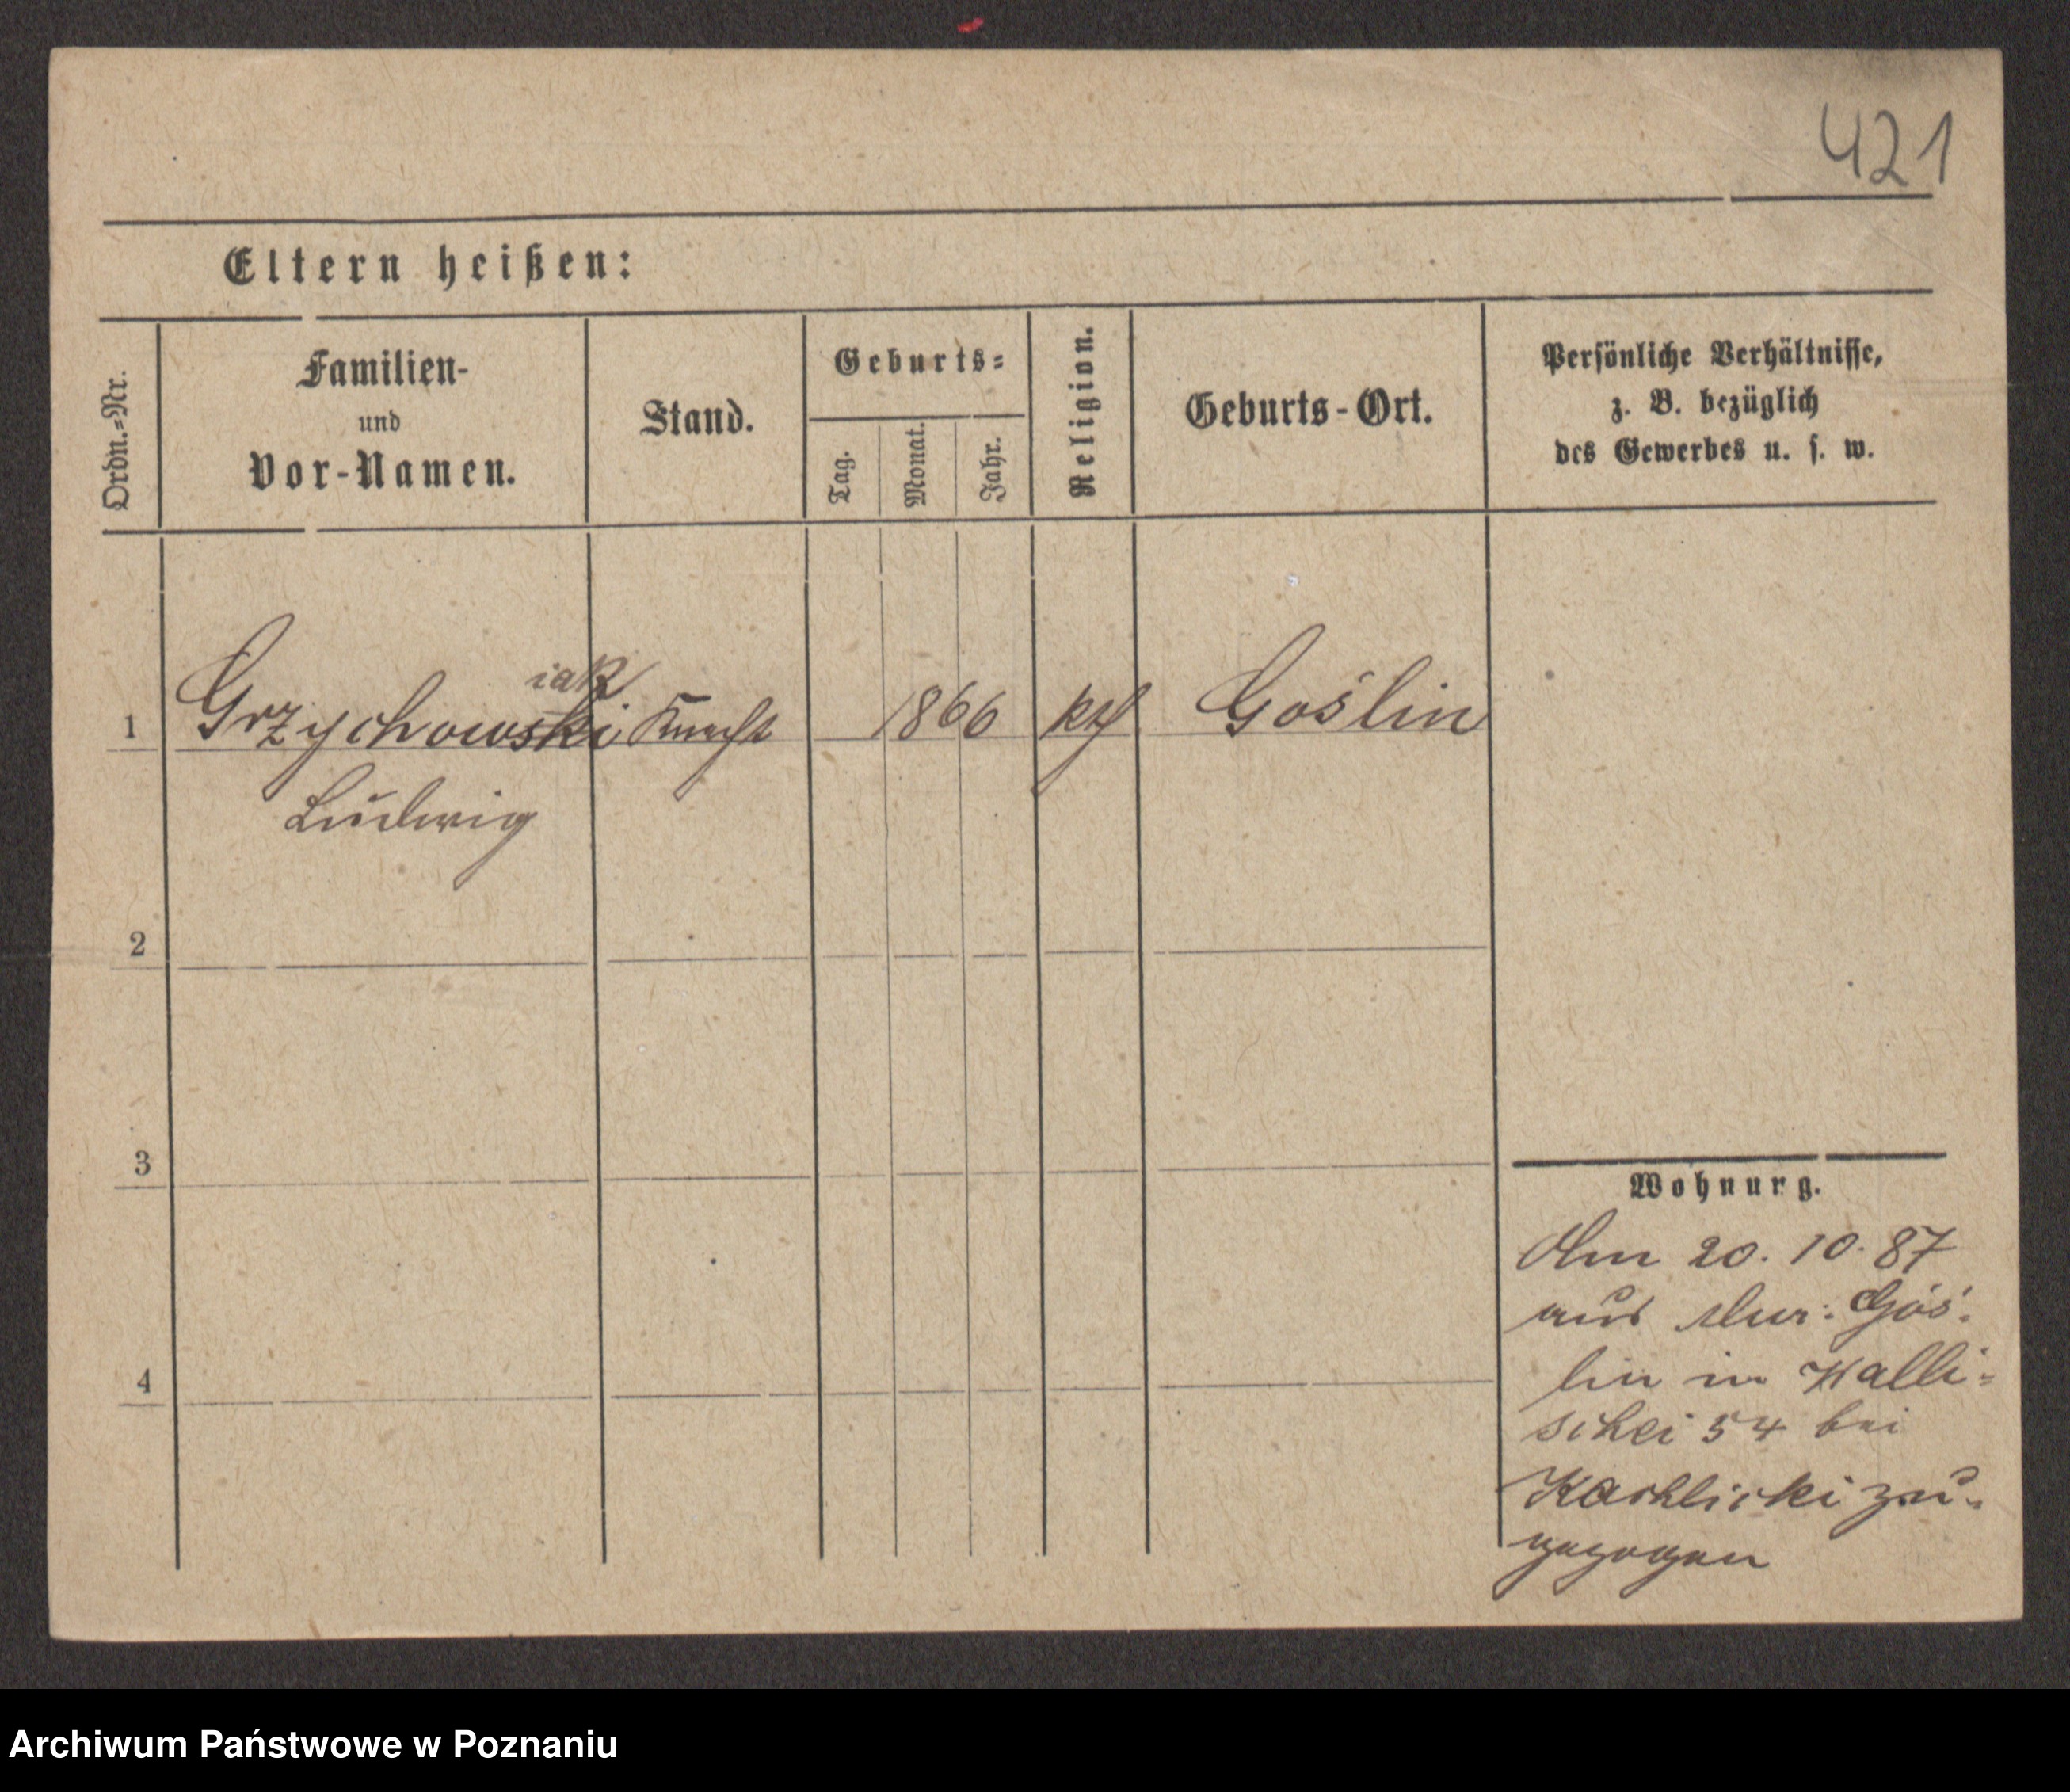 421
Eltern heißen:
Ordn.=Nr.
Familien-
und
Vor-Namen.
Stand.
Geburts=
Tag.
Monat.
Jahr.
Religion.
Geburts-Ort.
Persönliche Verhältnisse,
z. B. bezüglich
des Gewerbes u. s. w.
iak
1 Grzychowski Knecht 1866 kth Goślin
Ludwig
2
3
4
Wohnung.
Am 20. 10. 87
aus Mur: Goś.
lin in Walli=
schei 54 bei
Karhlicki zu=
gezogen
Archiwum Państwowe w Poznaniu